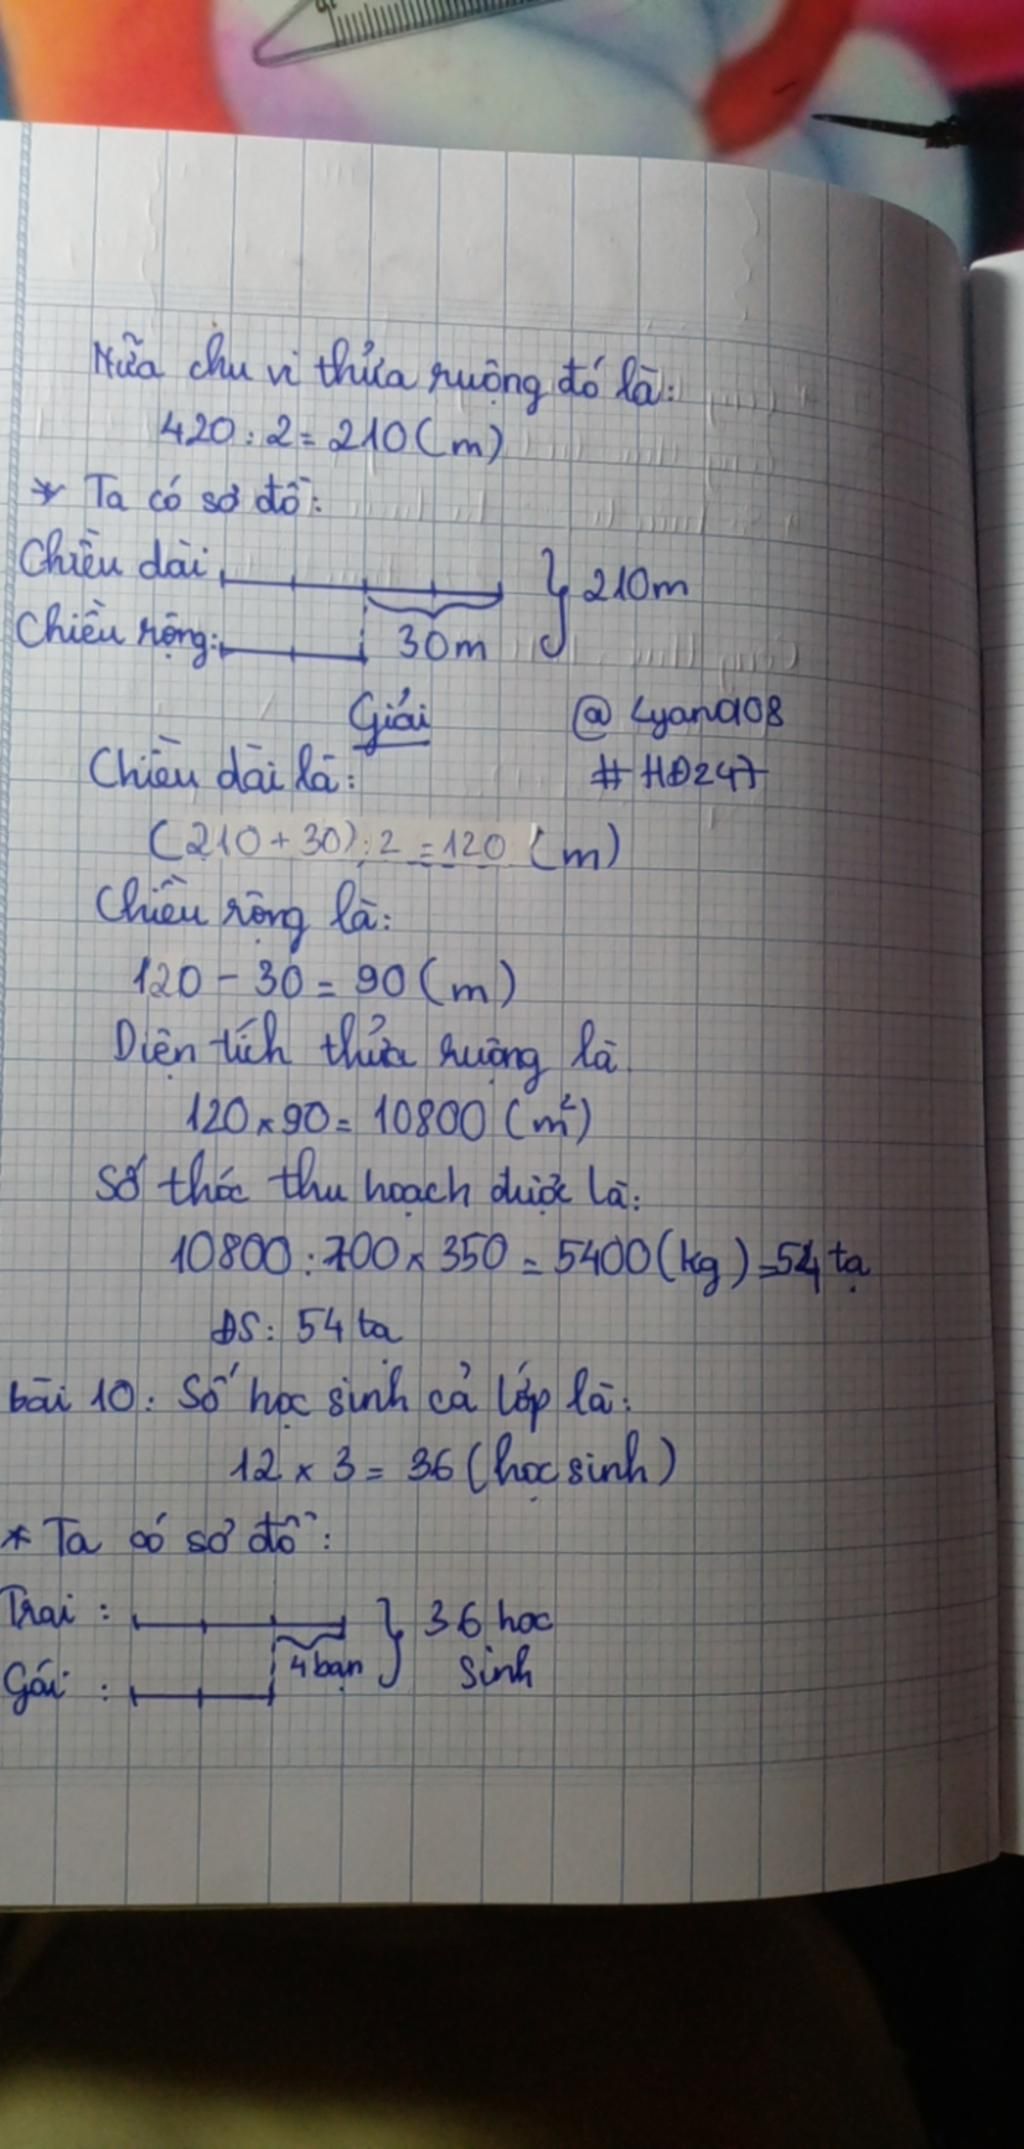 Nửa chu vi thửa ruộng đó là:
420 : 2 = 210 (m)
* Ta có sơ đồ:
Chiều dài: 210m
Chiều rộng: 30m
Giải @ Lyana108
Chiều dài là: # HĐ247
(210 + 30) : 2 = 120 (m)
Chiều rộng là:
120 - 30 = 90 (m)
Diện tích thửa ruộng là
120 × 90 = 10800 (m²)
Số thóc thu hoạch được là:
10800 : 700 × 350 = 5400 (kg) = 54 tạ
ĐS: 54 ta
bài 10: Số học sinh cả lớp là:
12 × 3 = 36 (học sinh)
* Ta có sơ đồ:
Trai : 36 học
4 bạn sinh
Gái :